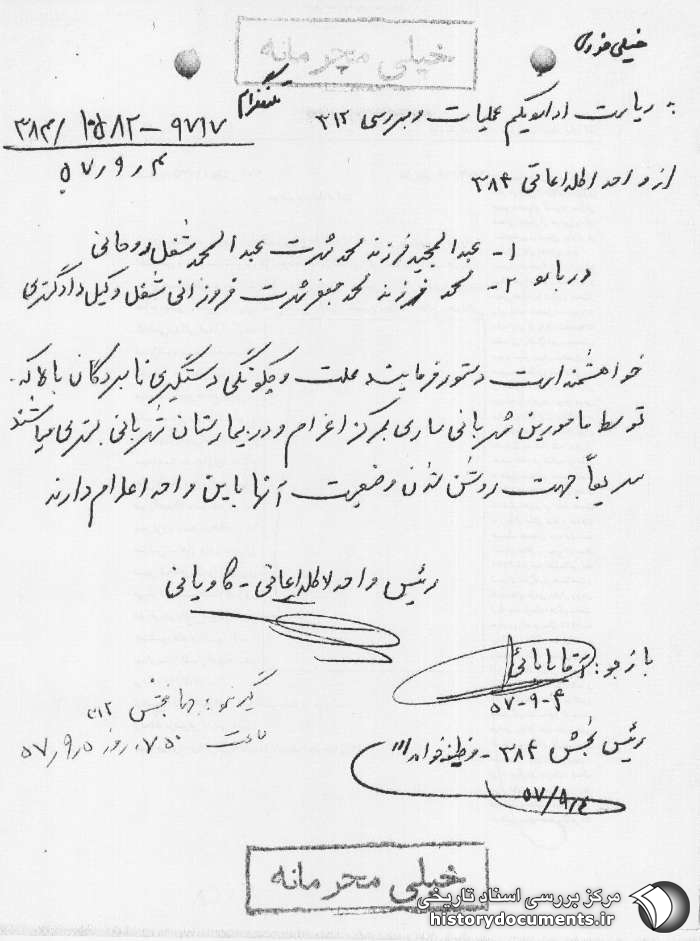 خیلی محرمانه
خیلی فوری
تلفنگرام
به ریاست اداره یکم عملیات و بررسی ۳۱۲
۹۷۱۷ – ۱۵۸۲ /۳۸۴
۵۷٫۹٫۴
از واحد اطلاعاتی ۳۸۴
۱- عبدالمجید فرزند محمد شهرت عبدالصمد شغل روحانی
درباره
۲- محمد فرزند محمد جعفر شهرت فروزانی شغل وکیل دادگستری
خواهشمند است دستور فرمایند علت و چگونگی دستگیری نامبردگان بالا که
توسط مامورین شهربانی ساری بمرکز اعزام و در بیمارستان شهربانی بستری میباشند
سریعاً جهت روشن شدن وضعیت آنها باین واحد اعلام دارند
رئیس واحد اطلاعاتی - کاویانی
بازجو: آقابابائی
۵۷-۹-۴
گیرنده: بخش ۳۱۲
ساعت ۷۵۰ روز ۵۷٫۹٫۵
رئیس بخش ۳۸۴ - وظیفه‌خواه
۵۷/۹/٤
خیلی محرمانه
مرکز بررسی اسناد تاریخی
historydocuments.ir